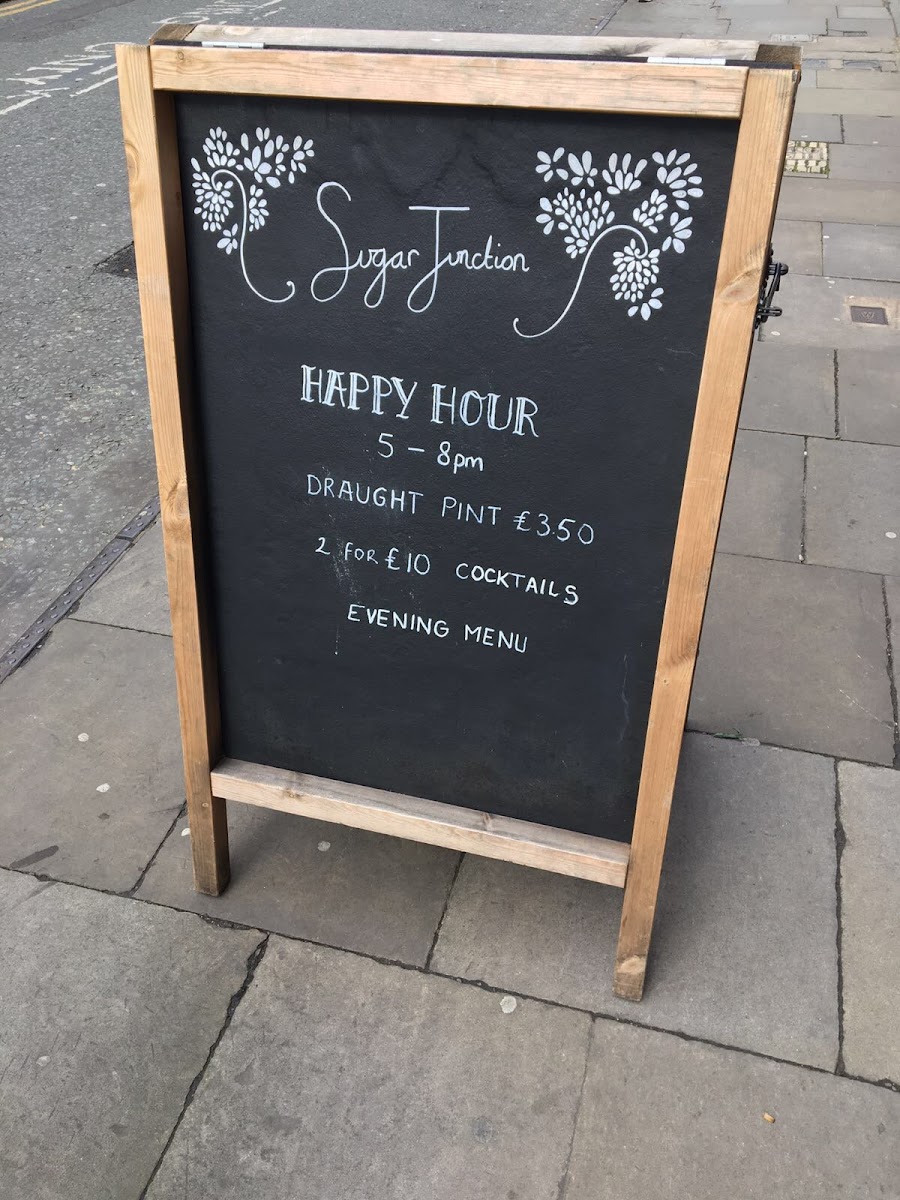 Sugar Junction
HAPPY HOUR
5 - 8pm
DRAUGHT PINT £3.50
2 FOR £10 COCKTAILS
EVENING MENU